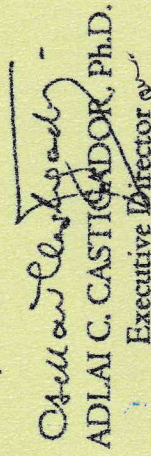 ADLAI C. CASTIGADOR, Ph.D.
Executive Director